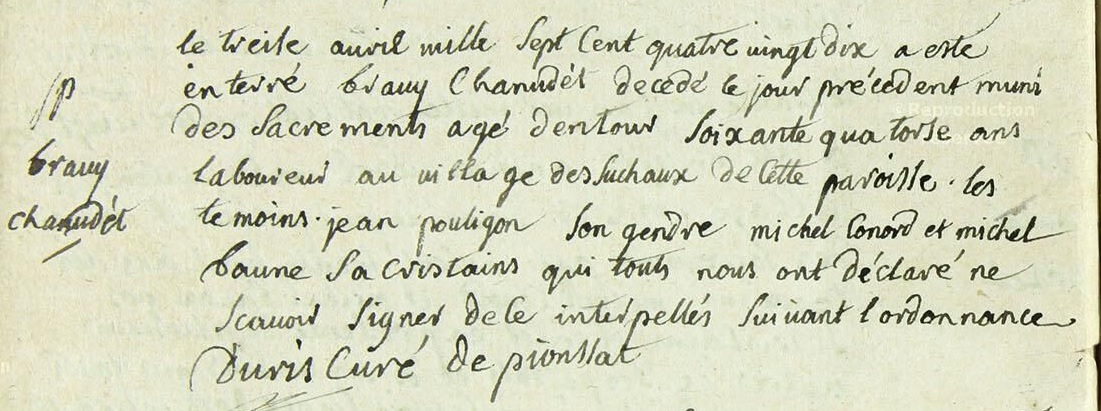 le treise avril mille sept cent quatre vingt dix a esté
enterré brauy Chanudét decedé le jour précedent muni
des Sacrements agé dentour soixante quatorse ans
laboureur au village des suchaux de cette paroisse. les
temoins. jean pouligon son gendre michel Conord et michel
baune Sacristains qui touts nous ont déclaré ne
scavoir signer de ce interpellés suivant l'ordonnance
Duris Curé de pionssat
Sp
brauy
chanudét
Reproduction